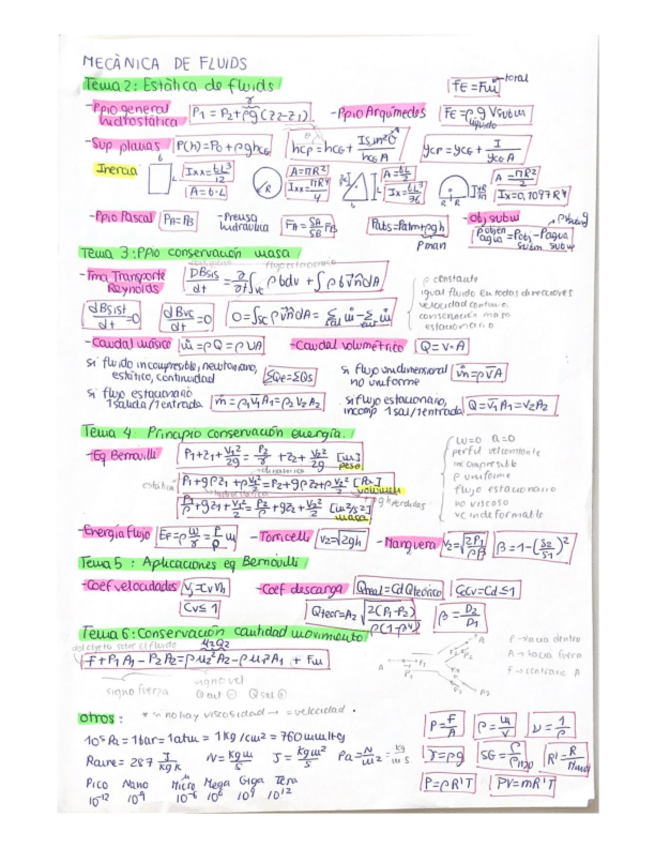 MECÀNICA DE FLUIDS
Tema 2: Estàtica de fluids
FE = Fm total
-Ppio general hidrostática P1 = P2 + ρg(z2-z1) γ -Ppio Arquímedes FE = ρ g Vsubm líquido
-Sup planas P(h) = P0 + ρghcG hcp = hcG + I sin²θ / hcG A ycp = ycG + I / ycG A
Inercia b L Ixx = bL³/12 A = b·L R A = πR² Ixx = πR⁴/4 L b Ix = bL³/36 R R A = πR²/2 Ix = 0,1097R⁴
-Ppio Pascal PA = PB -Prensa hidráulica FA = SA/SB FB Pabs = Patm + ρgh Pman -Obj subm
Tema 3: Ppio conservación masa
-Tma Transporte Reynolds DBsis/dt = ∂/∂t ∫vc ρbdv + ∫ρb v̄ n̄ dA
ρ constante
igual fluido en todas direcciones
velocidad continua
conservación masa
estacionario
dBsist/dt = 0 dBvc/dt = 0 0 = ∫sc ρ v̄ n̄ dA = Σ ṁ - Σ ṁ
-Caudal másico ṁ = ρQ = ρVA -Caudal volumétrico Q = V·A
si fluido incompresible, newtoniano, estático, continuidad ΣQe = ΣQs
si flujo unidimensional no uniforme ṁ = ρV̄A
si flujo estacionario 1salida/1entrada ṁ = ρ1V1A1 = ρ2V2A2
si flujo estacionario, incomp 1sal/1entrada Q = V̄1A1 = V2A2
Tema 4: Principio conservación energía.
-Eq Bernouilli P1/γ + z1 + V1²/2g = P2/γ + z2 + V2²/2g [m] peso
dinámica
estática P1 + ρgz1 + ρV1²/2 = P2 + ρgz2 + ρV2²/2 [Pa] volumen
P1/ρ + gz1 + V1²/2 = P2/ρ + gz2 + V2²/2 [m²/s²] masa
+ gh pérdidas
W=0 Q=0
perfil vel constante
incompresible
ρ uniforme
flujo estacionario
no viscoso
vc indeformable
-Energía flujo -Torricelli V2 = √2gh -Manguera V2 = √2P1/ρβ β = 1-(S2/S1)²
Tema 5: Aplicaciones eq Bernouilli
-Coef velocidades Cv ≤ 1 -Coef descarga Qreal = Cd Qteórico CcCv = Cd ≤ 1
Qteor = A2 √2(P1-P2)/ρ(1-β⁴) β = D2/D1
Tema 6: Conservación cantidad movimiento
del objeto sobre el fluido
F + P1A1 - P2A2 = ρV2²A2 - ρV1²A1 + Fm
signo fuerza signo vel Qent ⊖ Qsal ⊕
A P1 A A2
P→hacia dentro
A→hacia fuera
F→contrario A
Otros: * si no hay viscosidad → = velocidad.
10⁵ Pa = 1bar = 1atm = 1kg/cm² = 760mmHg
Raire = 287 J/kg K N = kg m/s J = kg m²/s Pa = N/m² = kg/m s
Pico Nano Micro Mega Giga Tera
10⁻¹² 10⁹ 10⁻⁶ 10⁶ 10⁹ 10¹²
P = F/A ρ = m/V ν = 1/ρ
γ = ρg SG = ρ/ρH2O R' = R/Mmol
P = ρR'T PV = mR'T